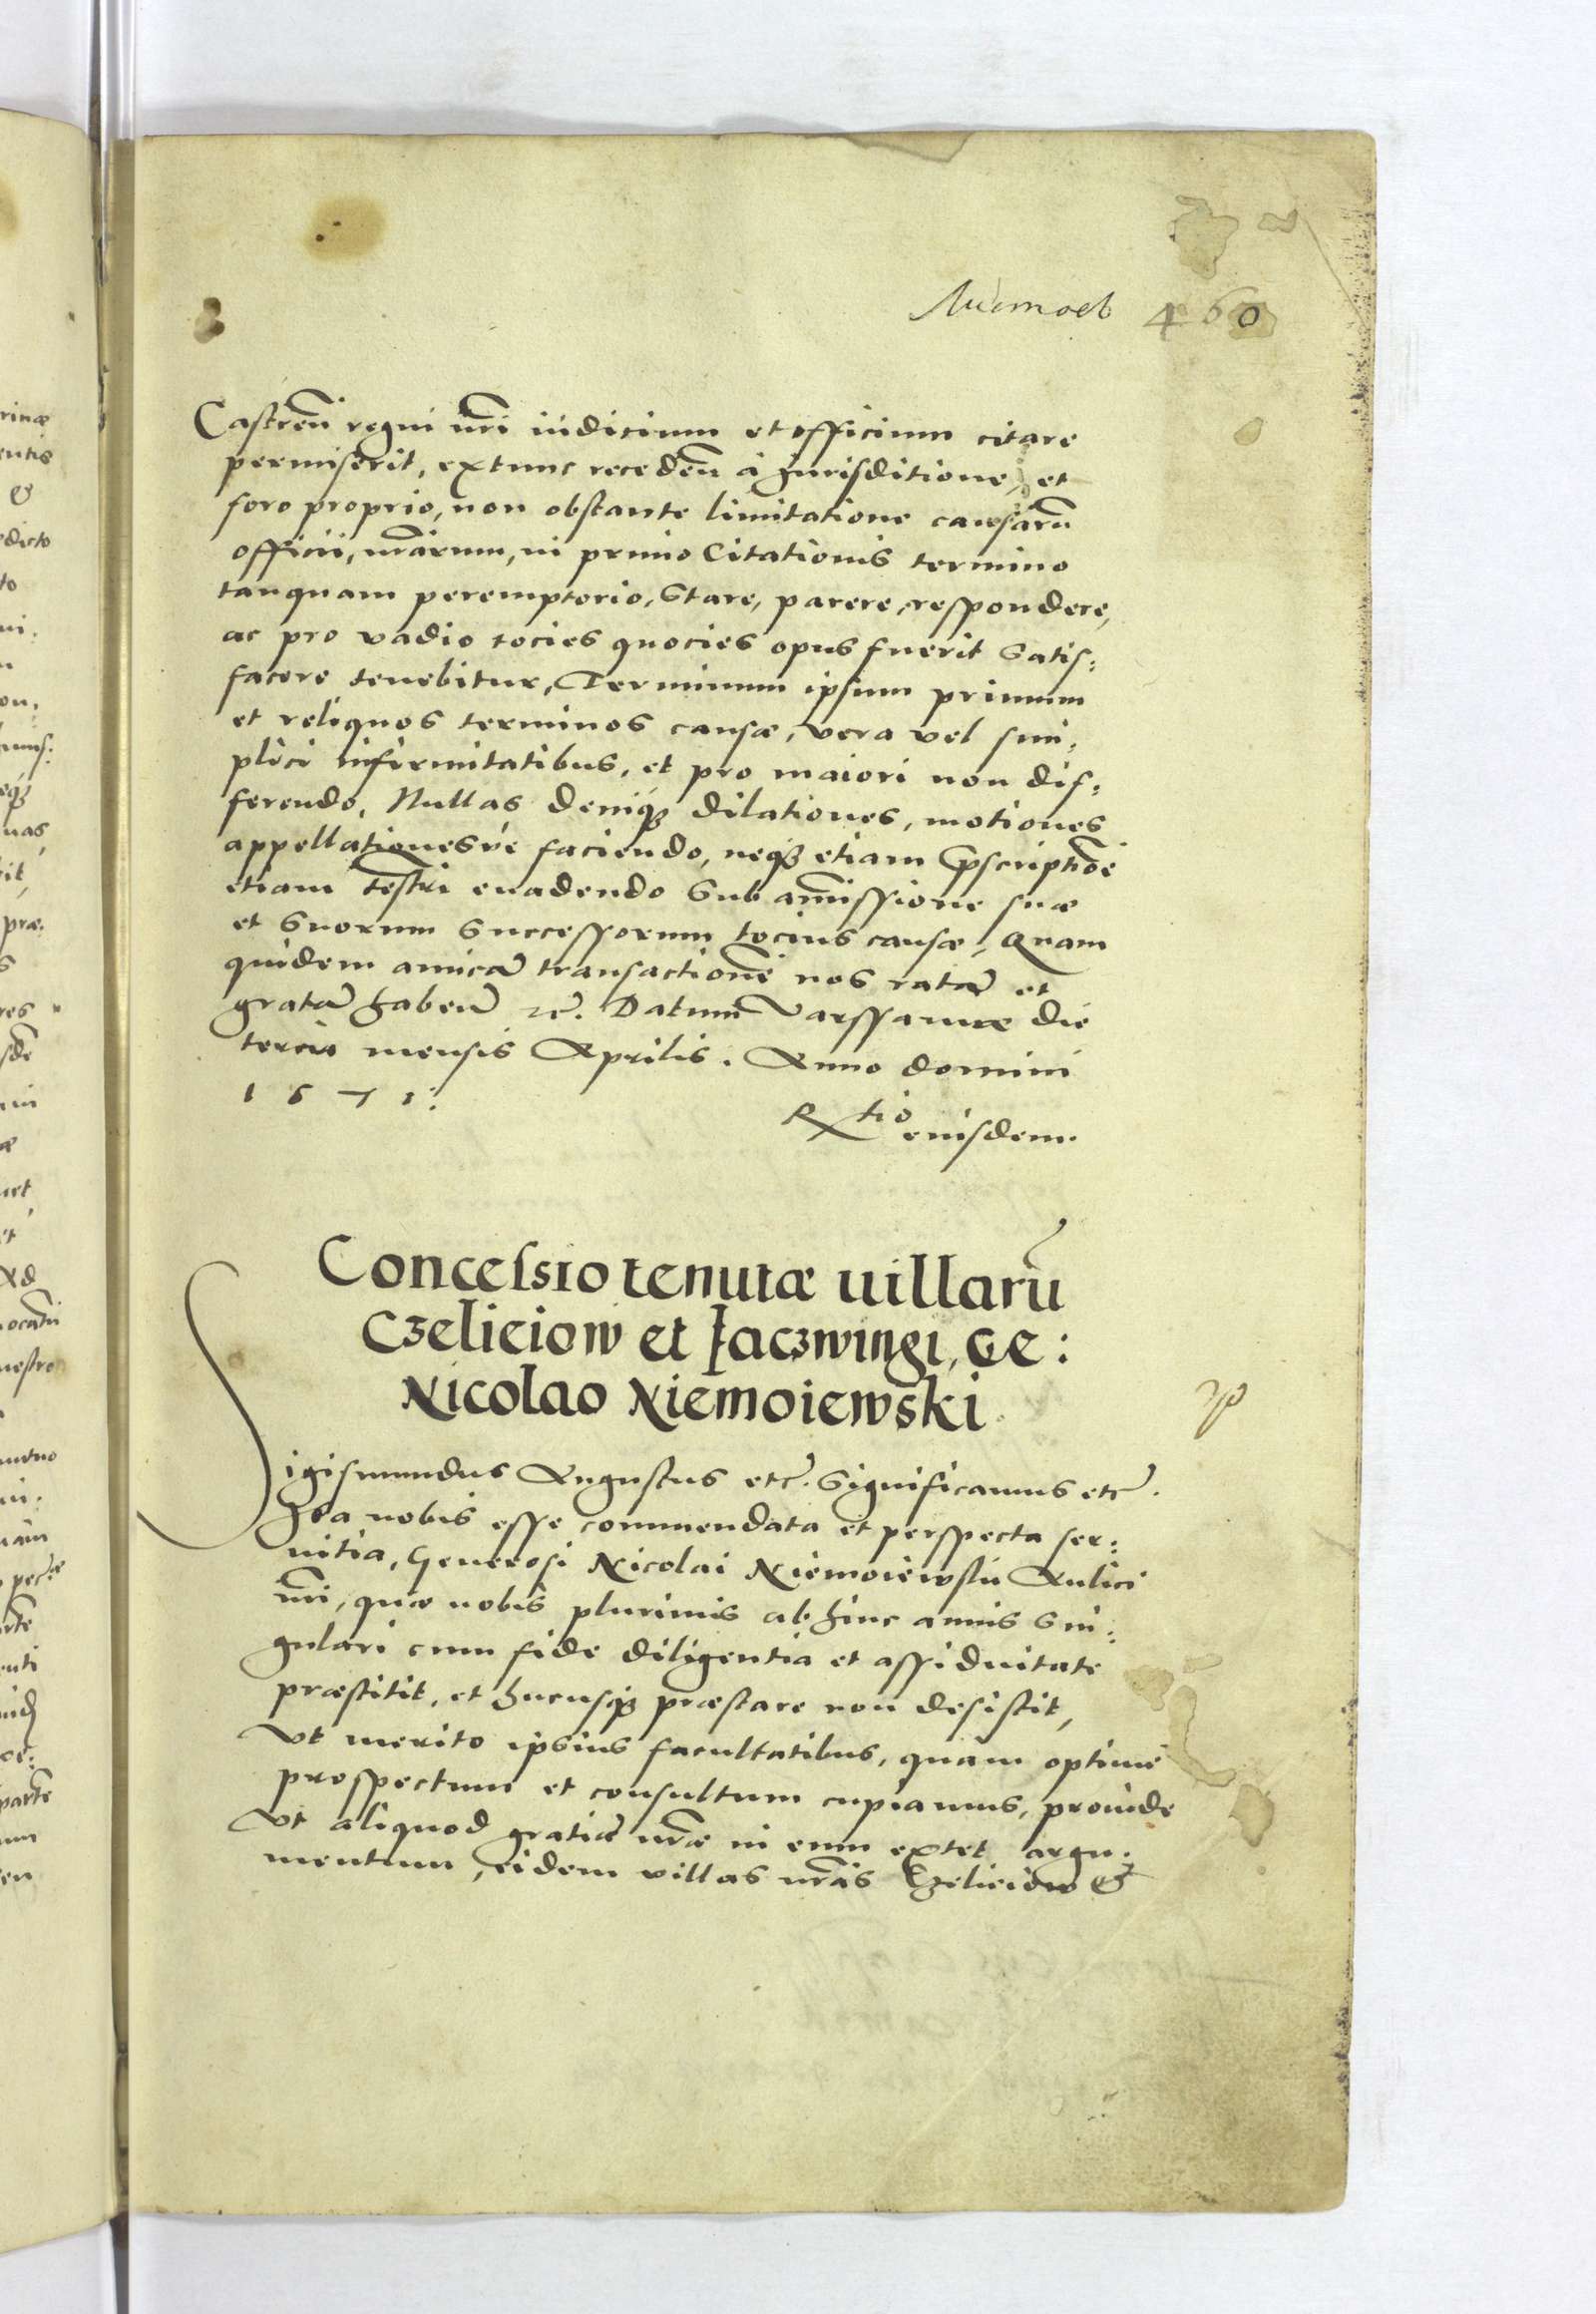 Niemoeb 460
Castreñ regni nri iudicium et officium citare
permiserit, extunc recedeñ à Jurisditione, et
foro proprio, non obstante limitatione causarũ
officii, nrarum, in primo Citationis termino
tanquam peremptorio, Stare, parere, respondere,
ac pro vadio tocies quocies opus fuerit Satis:
facere tenebitur, Terminum ipsum primum
et reliquos terminos causæ, vera vel sim:
plici infirmitatibus, et pro maiori non dif:
ferendo, Nullas deniqȝ dilationes, motiones
appellationesve faciendo, neqȝ etiam pscriptõe
etiam testri evadendo Sub amissione suæ
et Suorum Successorum tocius causæ, Quam
quidem amicã transactionẽ nos ratã et
gratã habeñ etc. Datum Varssaviæ die
tercio mensis Aprilis. Anno domini
1571.
Rtio eiusdem.
Concessio tenutæ uillarũ
Czelieiow et Jaczwingi, Ge:
Nicolao Niemoiewski
Sigismundus Augustus etc. Significamus etc.
Ita nobis esse commendata et perspecta ser:
vitia, Generosi Nicolai Niemoiewskii Aulici
nri, quæ nobis plurimis abhinc annis Sin:
gulari cum fide diligentia et assiduitate
præstitit, et hucusqȝ præstare non desistit,
Vt merito ipsius facultatibus, quam optime
prospectum et consultum cupiamus, proinde
Vt aliquod gratiæ nræ in eum extet argu:
mentum, eidem villas nras Czelieiow &